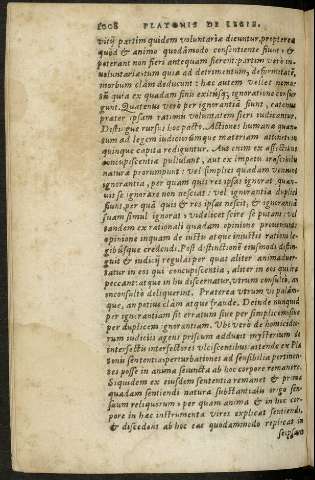 1008 PLATONIS DE LEGIB.
vitij partim quidem voluntariæ dicuntur, propterea
quòd & animo quodámodo consentiente fiunt, &
poterant non fieri antequam fierent: partim verò in-
voluntariæ tum quia ad detrimentum, deformitatē,
morbum clàm deducunt: hæc autem vellet nemo:
tùm quia ex quadam finis exitusq; ignoratione consur
gunt. Quatenus verò per ignorantiã fiunt, eatenus
præter ipsam rationis voluntatem fieri iudicantur.
Distingue rursus hoc pacto. Actiones humanæ quan-
tum ad legem iudiciorũmque materiam attinet, in
quinque capita rediguntur. Aut enim ex affectibus
concupiscentiæ pullulant, aut ex impetu irascibilis
natura prorumpunt: vel simplici quadam veniunt
ignorantia, per quam quis res ipsas ignorat, quam-
vis se ignorare non nesciat: vel ignorantia duplici
fiunt, per quã quis & res ipsas nescit, & ignorantiã
suam simul ignorat, videlicet scire se putans: vel
tandem ex rationali quadam opinione proveniunt:
opinione inquam de iustis atque iniustis rationi le-
gibúsque credendi. Post distinctionē eiusmodi distin-
guit & iudicij regulas per quas aliter animaduer-
tatur in eos qui concupiscentia, aliter in eos qui ira
peccant: atque in his discernatur, vtrum consultò, an
inconsultò deliquerint. Præterea vtrum vi palàm-
que, an potius clàm atque fraude. Deinde nunquid
per ignorantiam sit erratum siue per simplicem, siue
per duplicem ignorantiam. Vbi verò de homicidio-
rum iudiciis agens priscum adducit mysterium de
interfectis interfectores vlciscentibus: attende ex Pla
tonis sententia, perturbationes ad sensibilia pertinen-
tes posse in anima seiuncta ab hoc corpore remanere.
Siquidem ex eiusdem sententia remanet & prima
quædam sentiendi natura substantialis origo sen-
suum reliquorum: per quam anima & in hoc cor-
pore in hæc instrumenta vires explicat sentiendi,
& discedens ab hoc eas quodammodo replicat in
seipsam